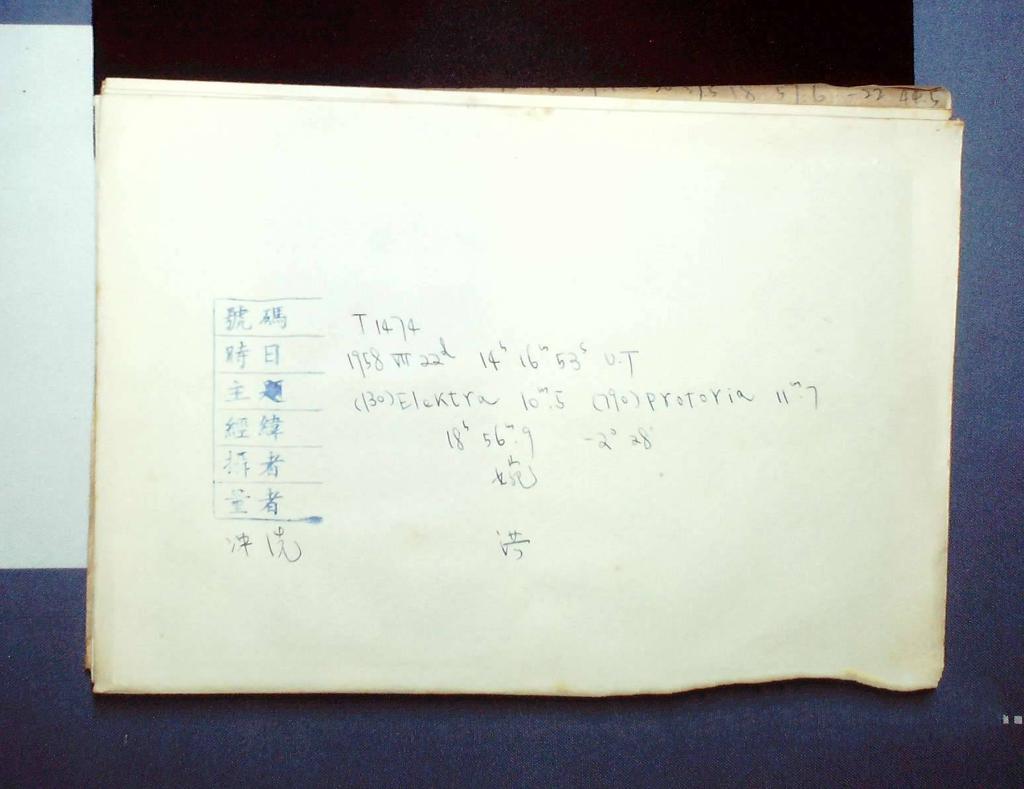 號碼 T1474
時日 1958 VII 22ᵈ 14ʰ 16ᵐ 53ˢ U.T
主題 (130)Elektra 10ᵐ.5 (790)Protoria 11ᵐ.7
經緯 18ʰ 56ᵐ.9 -2° 28'
攝者 婉
量者
冲洗 洪